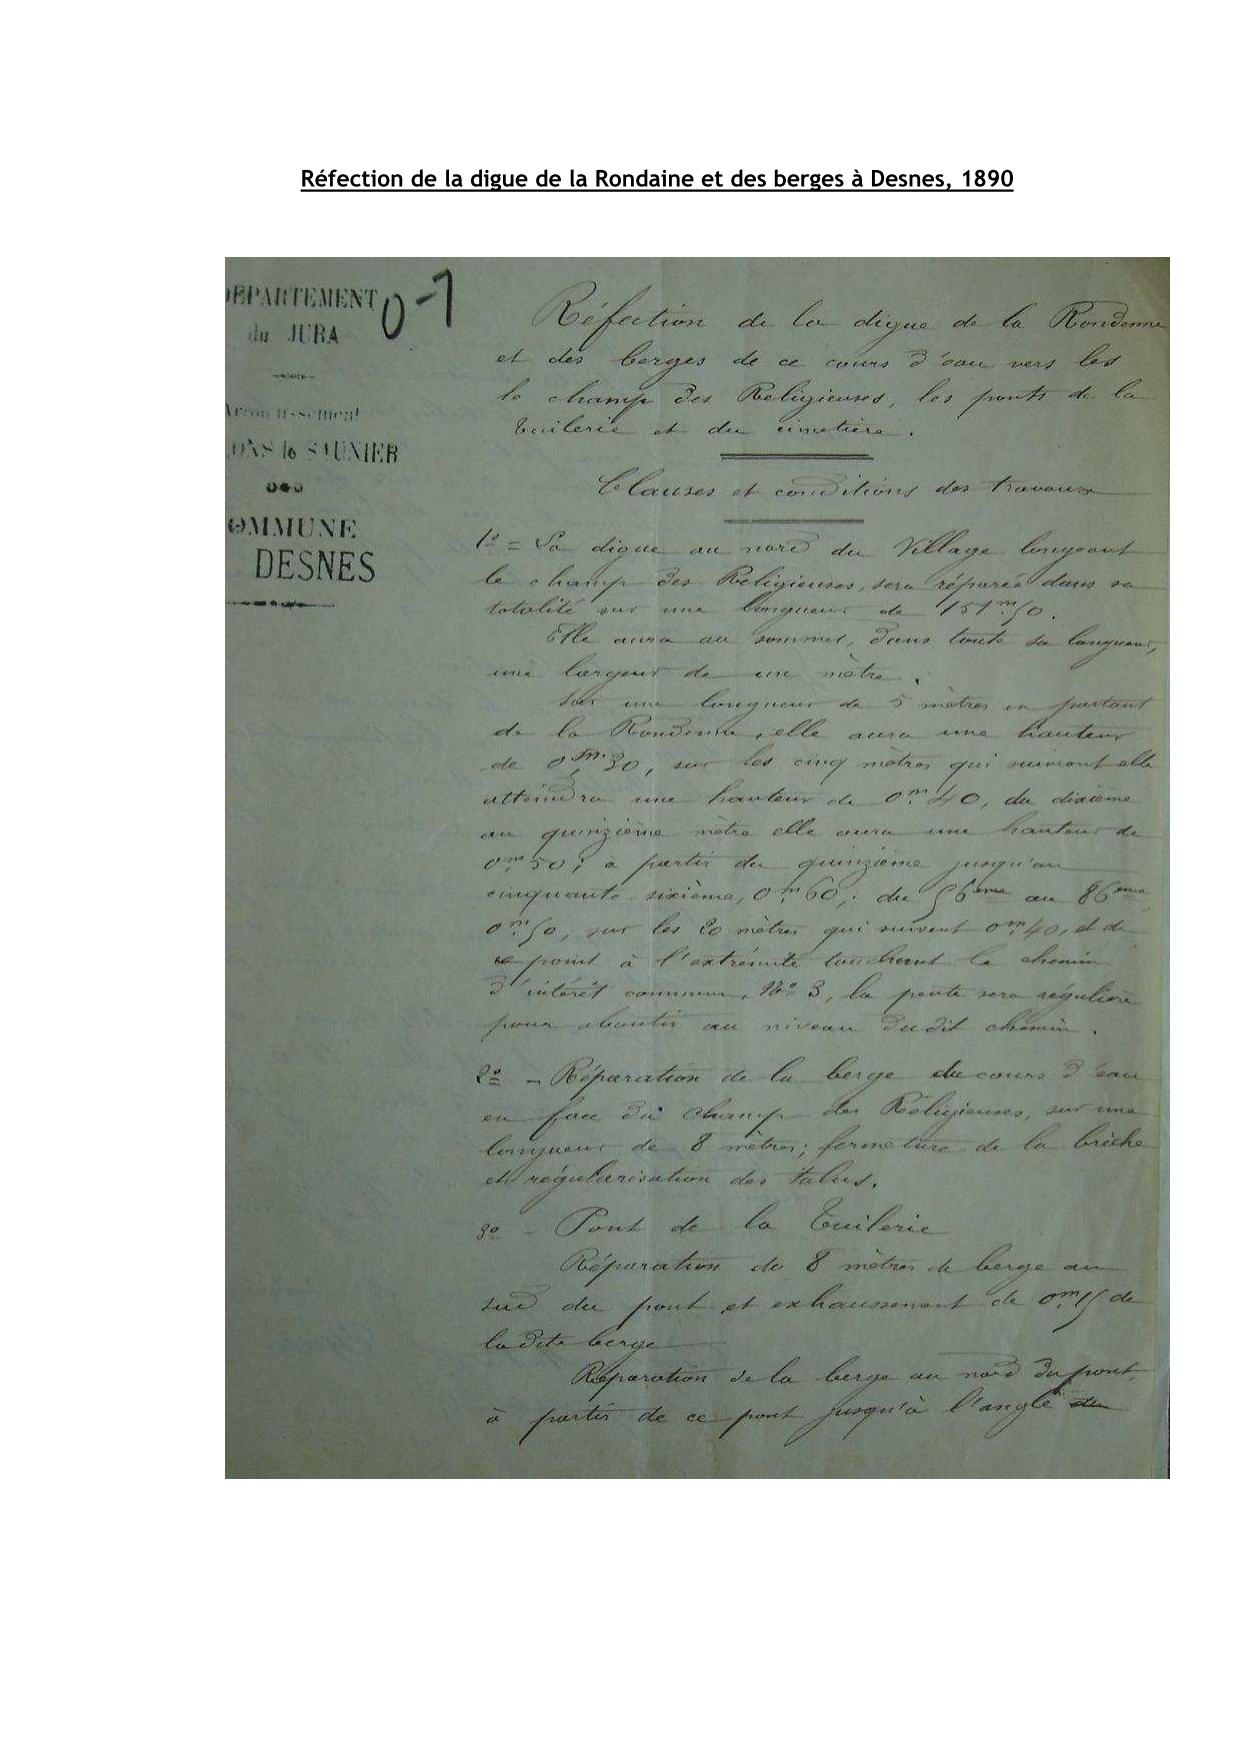 Réfection de la digue de la Rondaine et des berges à Desnes, 1890
DEPARTEMENT
du JURA
0-7
Arrondissement
LONS le SAUNIER
COMMUNE
DESNES
Réfection de la digue de la Rondenne
et des berges de ce cours d'eau vers les
le champ des Religieuses, les ponts de la
tuilerie et du cimetière.
Clauses et conditions des travaux
1º = La digue au nord du Village longeant
le champ des Religieuses, sera réparée dans sa
totalité sur une longueur de 151m,50.
Elle aura au sommet, dans toute sa longueur,
une largeur de un mètre.
Sur une longueur de 5 mètres en partant
de la Rondenne, elle aura une hauteur
de 0,m30, sur les cinq mètres qui suivront elle
atteindra une hauteur de 0m,40, du dixième
au quinzième mètre elle aura une hauteur de
0m,50; à partir du quinzième jusqu'au
cinquante sixième, 0m,60; du 56ème au 86ème
0m,50, sur les 20 mètres qui suivent 0m,40, et de
ce point à l'extrémité touchant le chemin
d'intérêt commun, Nº 3, la pente sera régulière
pour aboutir au niveau dudit chemin.
2º - Réparation de la berge du cours d'eau
en face du champ des Religieuses, sur une
longueur de 8 mètres; fermeture de la brèche
et régularisation des talus.
3º - Pont de la Tuilerie
Réparation de 8 mètres de berge au
sud du pont et exhaussement de 0m,15 de
la dite berge
Réparation de la berge au nord du pont,
à partir de ce pont jusqu'à l'angle